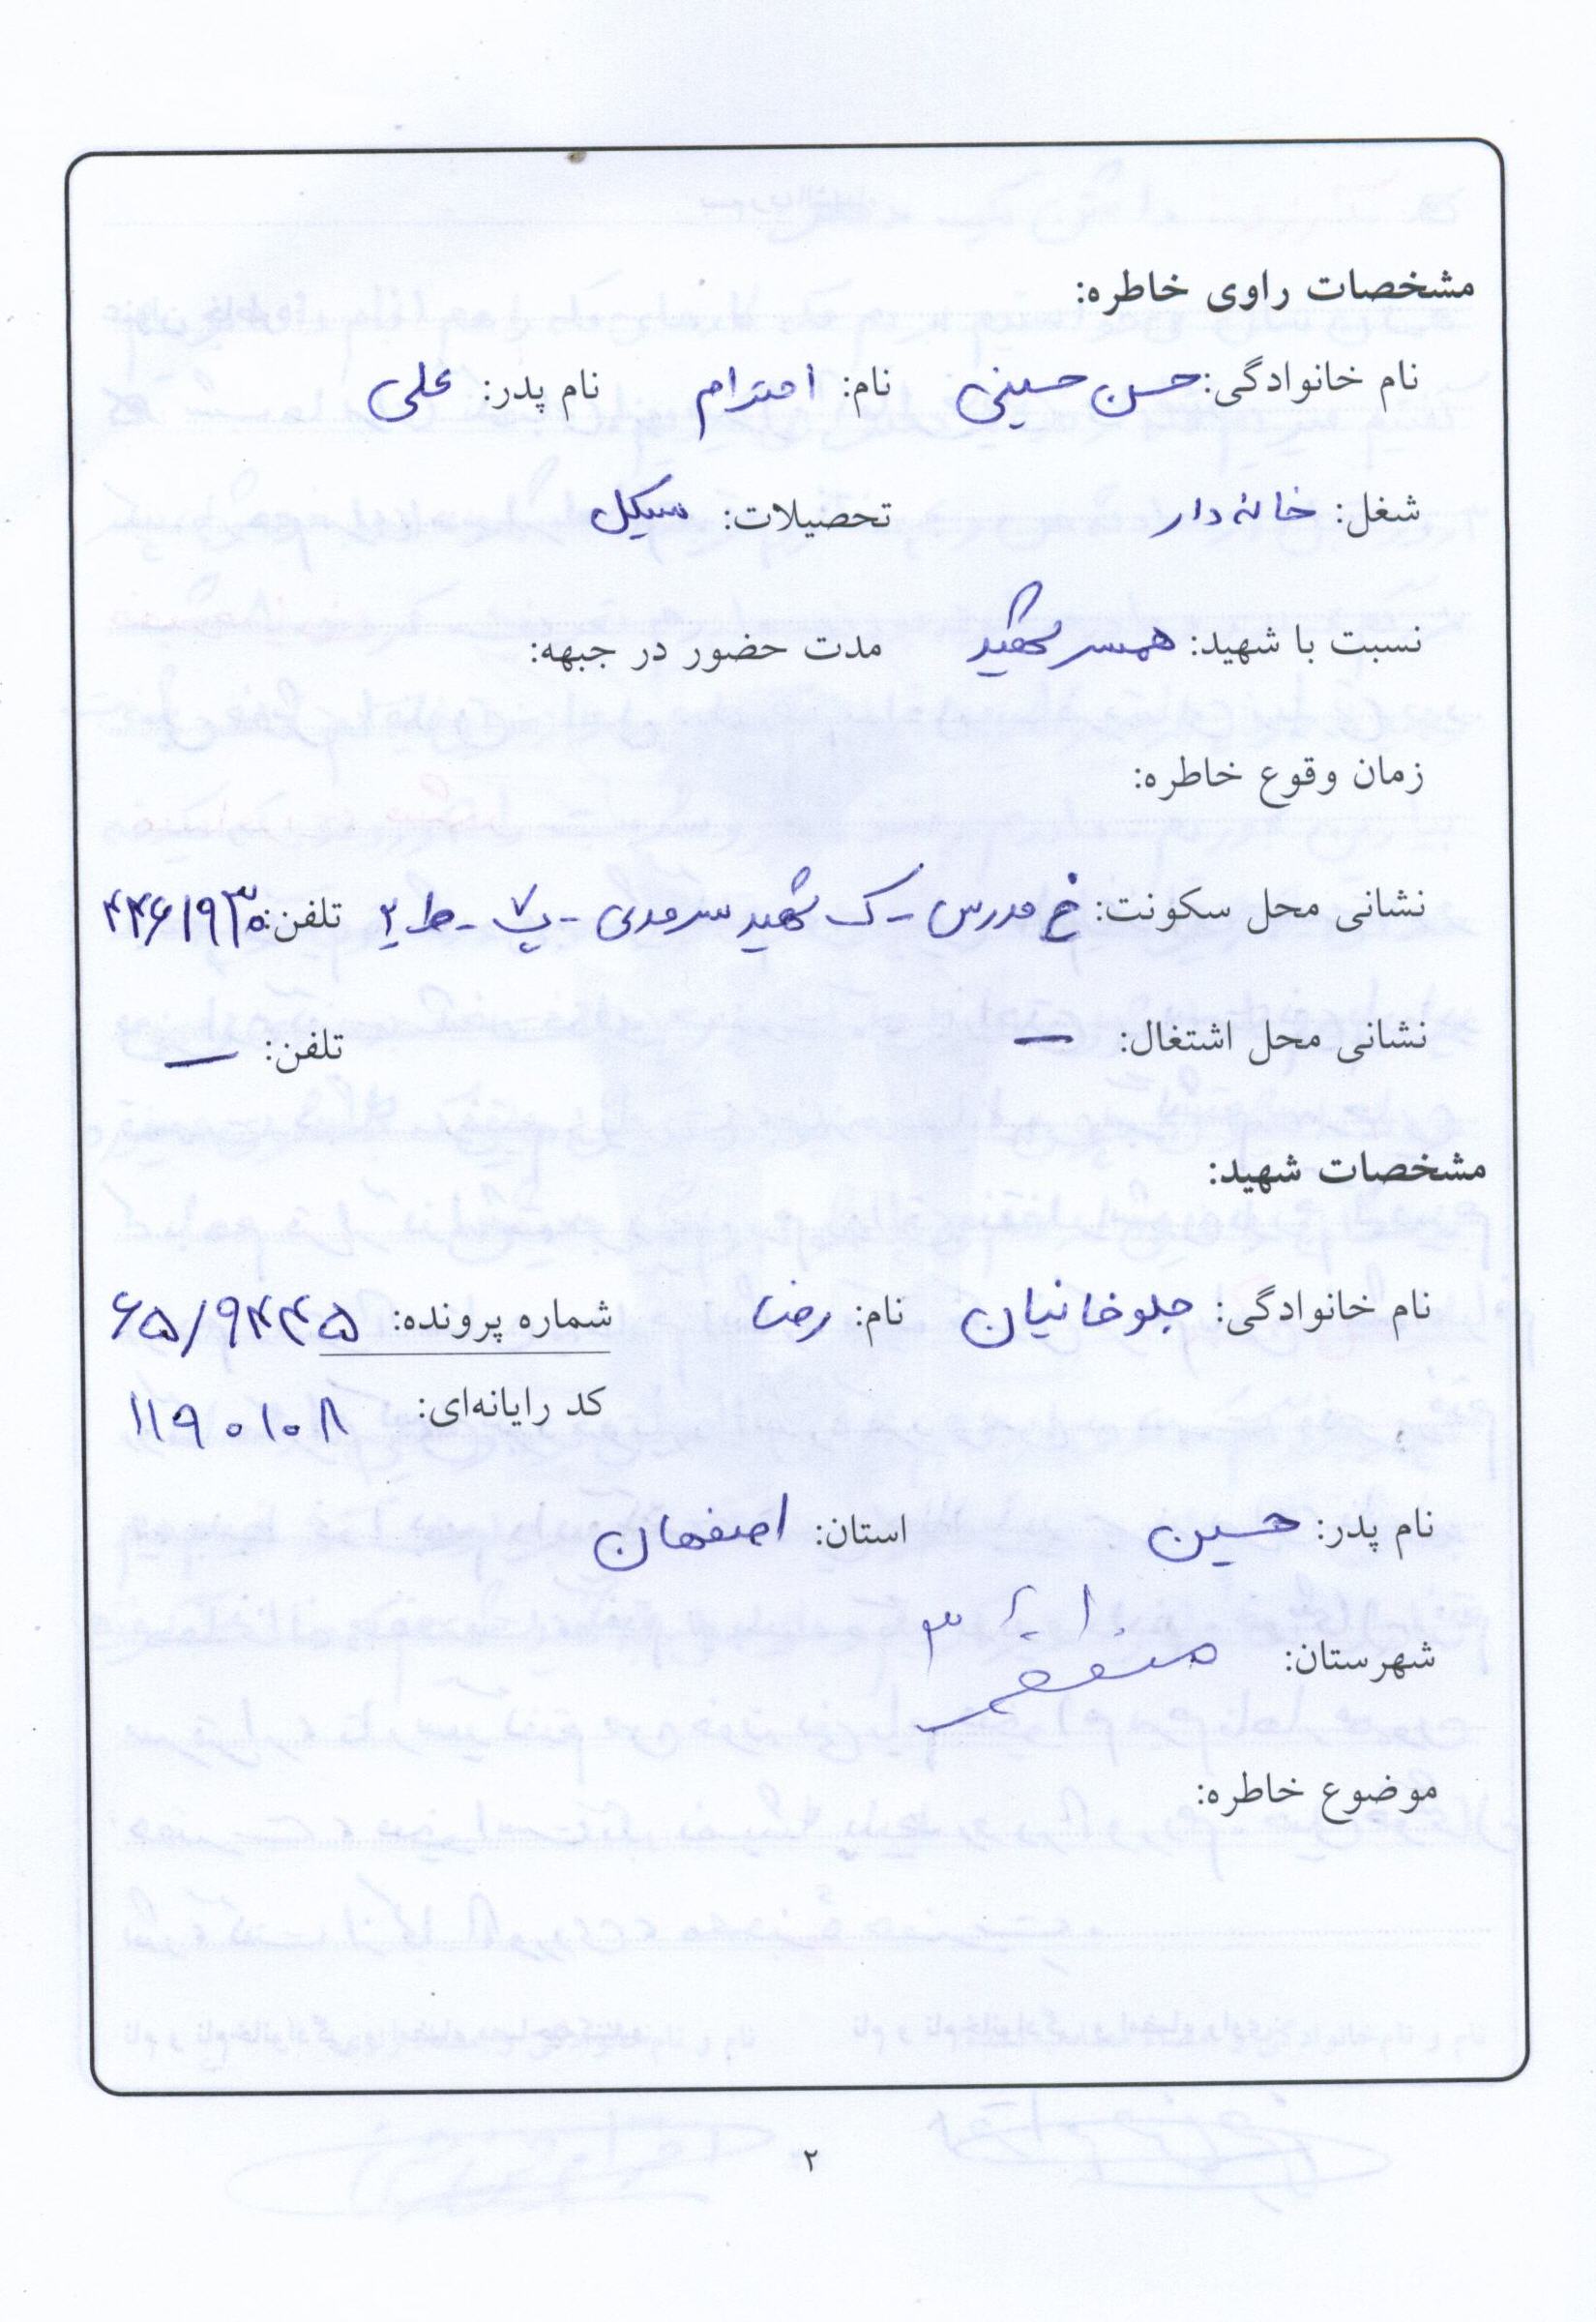 مشخصات راوی خاطره:
نام خانوادگی: حسن حسینی نام: احترام نام پدر: علی
شغل: خانه دار تحصیلات: سیکل
نسبت با شهید: همسر شهید مدت حضور در جبهه:
زمان وقوع خاطره:
نشانی محل سکونت: خ مدرس - ک شهید سرمدی - پ ۷ - ط ۲ تلفن: ۴۴۶۱۹۳۰
نشانی محل اشتغال: — تلفن: —
مشخصات شهید:
نام خانوادگی: جلوخانیان نام: رضا شماره پرونده: ۶۵/۹۴۴۵
کد رایانه‌ای: ۱۱۹۰۱۰۸
نام پدر: حسین استان: اصفهان
شهرستان: ۳
موضوع خاطره:
۲